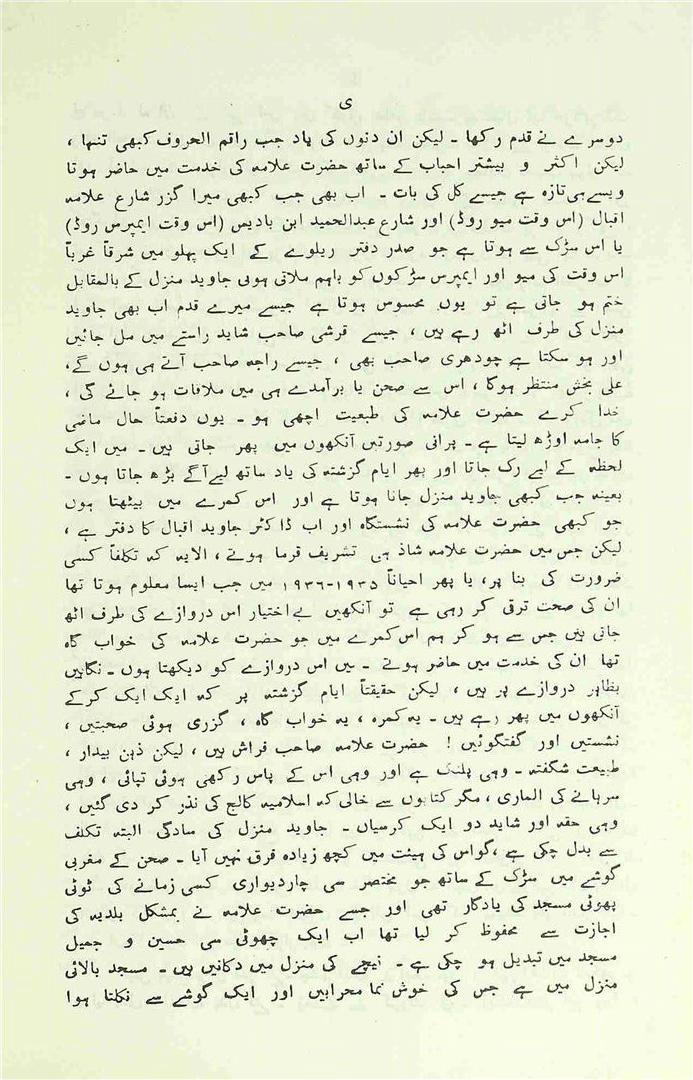 ی
دوسرے نے قدم رکھا ۔ لیکن ان دنوں کی یاد جب راقم الحروف کبھی تنہا ،
لیکن اکثر و بیشتر احباب کے ساتھ حضرت علامہ کی خدمت میں حاضر ہوتا
ویسے ہی تازہ ہے جیسے کل کی بات ۔ اب بھی جب کبھی میرا گزر شارع علامہ
اقبال (اس وقت میو روڈ) اور شارع عبدالحمید ابن بادیس (اس وقت ایمپرس روڈ)
یا اس سڑک سے ہوتا ہے جو صدر دفتر ریلوے کے ایک پہلو میں شرقاً غرباً
اس وقت کی میو اور ایمپرس سڑکوں کو باہم ملاتی ہوئی جاوید منزل کے بالمقابل
ختم ہو جاتی ہے تو یوں محسوس ہوتا ہے جیسے میرے قدم اب بھی جاوید
منزل کی طرف اٹھ رہے ہیں ، جیسے قرشی صاحب شاید راستے میں مل جائیں
اور ہو سکتا ہے چودھری صاحب بھی ، جیسے راجہ صاحب آتے ہی ہوں گے،
علی بخش منتظر ہوگا ، اس سے صحن یا برآمدے ہی میں ملاقات ہو جائے گی ،
خدا کرے حضرت علامہ کی طبعیت اچھی ہو ۔ یوں دفعتاً حال ماضی
کا جامہ اوڑھ لیتا ہے ۔ پرانی صورتیں آنکھوں میں پھر جاتی ہیں ۔ میں ایک
لحظہ کے لیے رک جاتا اور پھر ایام گزشتہ کی یاد ساتھ لیے آگے بڑھ جاتا ہوں ۔
بعینہ جب کبھی جاوید منزل جانا ہوتا ہے اور اس کمرے میں بیٹھتا ہوں
جو کبھی حضرت علامہ کی نشستگاہ اور اب ڈاکٹر جاوید اقبال کا دفتر ہے ،
لیکن جس میں حضرت علامہ شاذ ہی تشریف فرما ہوتے ، الا یہ کہ تکلفاً کسی
ضرورت کی بنا پر، یا پھر احیاناً ۱۹۳۵-۱۹۳۶ میں جب ایسا معلوم ہوتا تھا
ان کی صحت ترقی کر رہی ہے تو آنکھیں بے اختیار اس دروازے کی طرف اٹھ
جاتی ہیں جس سے ہو کر ہم اس کمرے میں جو حضرت علامہ کی خواب گاہ
تھا ان کی خدمت میں حاضر ہوتے ۔ میں اس دروازے کو دیکھتا ہوں ۔ نگاہیں
بظاہر دروازے پر ہیں ، لیکن حقیقتاً ایام گزشتہ پر کہ ایک ایک کرکے
آنکھوں میں پھر رہے ہیں ۔ یہ کمرہ ، یہ خواب گاہ ، گزری ہوئی صحبتیں ،
نشستیں اور گفتگوئیں ! حضرت علامہ صاحب فراش ہیں ، لیکن ذہن بیدار ،
طبیعت شگفتہ ۔ وہی پلنگ ہے اور وہی اس کے پاس رکھی ہوئی تپائی ، وہی
سرہانے کی الماری ، مگر کتابوں سے خالی کہ اسلامیہ کالج کی نذر کر دی گئیں ،
وہی حقہ اور شاید دو ایک کرسیاں ۔ جاوید منزل کی سادگی البتہ تکلف
سے بدل چکی ہے ،گو اس کی ہیئت میں کچھ زیادہ فرق نہیں آیا ۔ صحن کے مغربی
گوشے میں سڑک کے ساتھ جو مختصر سی چاردیواری کسی زمانے کی ٹوٹی
پھوٹی مسجد کی یادگار تھی اور جسے حضرت علامہ نے بمشکل بلدیہ کی
اجازت سے محفوظ کر لیا تھا اب ایک چھوٹی سی حسین و جمیل
مسجد میں تبدیل ہو چکی ہے ۔ نیچے کی منزل میں دکانیں ہیں ۔ مسجد بالائی
منزل میں ہے جس کی خوش نما محرابیں اور ایک گوشے سے نکلتا ہوا